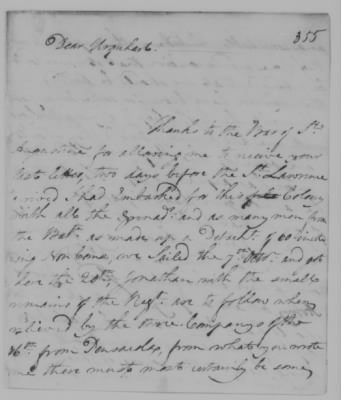 355
Dear Urquhart.
Thanks to the of St.
Augustine for allowing me to receive your
last letter, two days before the St. Lawrence
arived I had Embarked for this Colony
with all the and as many men from
the Batt. as made up a Detacht of 60 inclu
ding Non Coms, we Sailed the 7th and
the 20th, Jonathan with the small
remains of the Regt. are to follow when
relieved by the three Companys of the
16th from Pensacola, from what you wrote
me there must most certainly be some